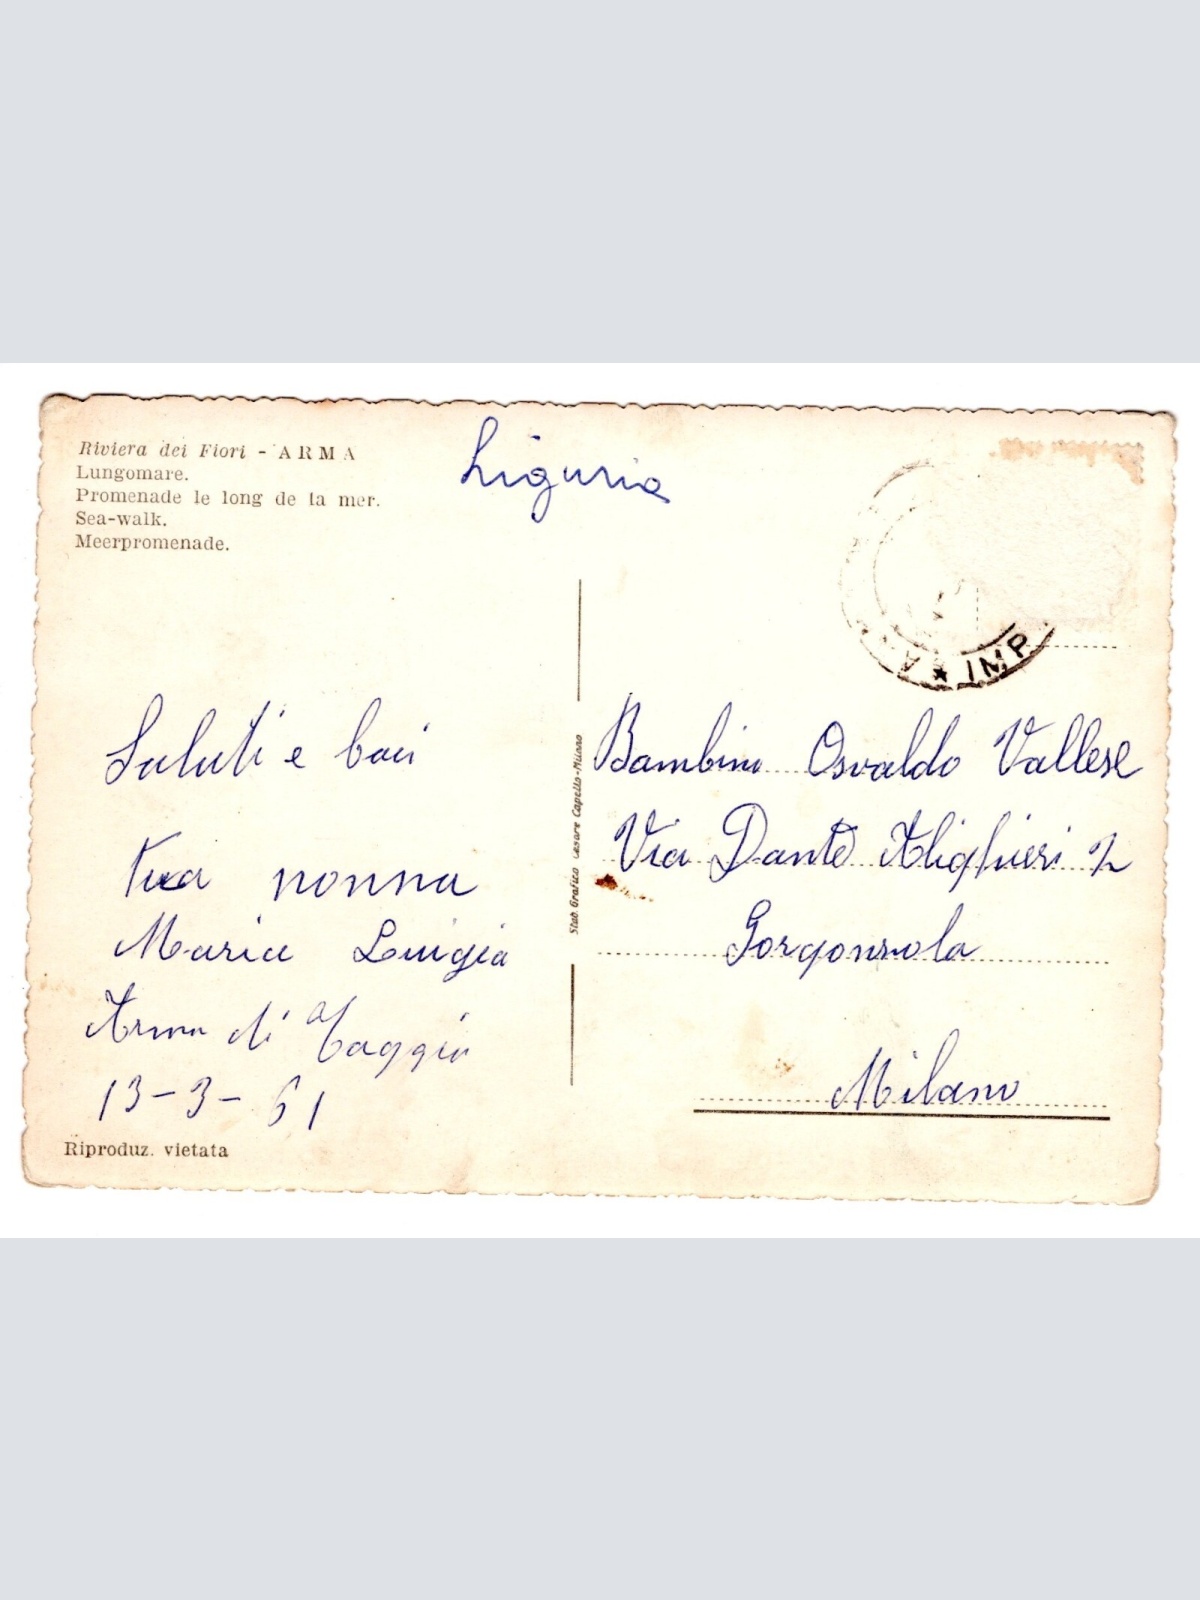 Riviera dei Fiori - ARMA
Lungomare.
Promenade le long de la mer.
Sea-walk.
Meerpromenade.
Liguria
IMP
Saluti e baci
tua nonna
Maria Luigia
Arma di Taggia
13-3-61
Riproduz. vietata
Stab. Grafico Cesare Capello-Milano
Bambino Osvaldo Vallese
Via Dante Alighieri 2
Gorgonzola
Milano